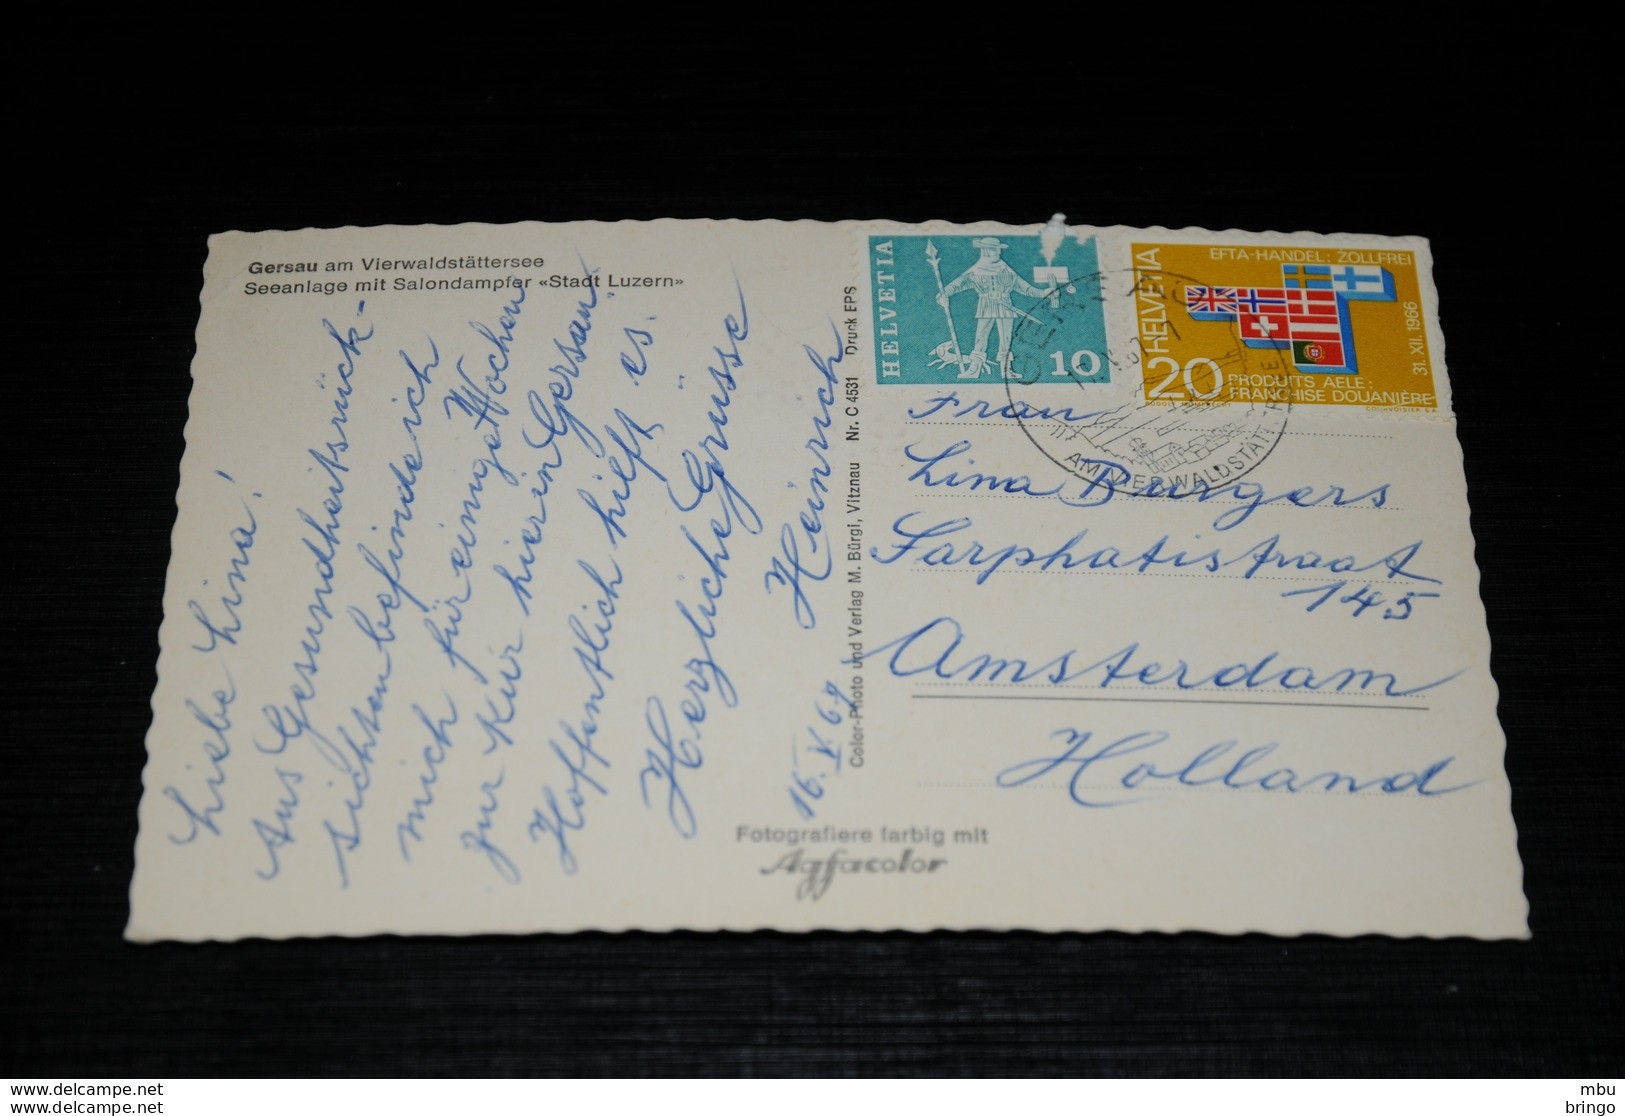 Gersau am Vierwaldstättersee
Seeanlage mit Salondampfer «Stadt Luzern»
Liebe Lina!
Aus Gesundheitsrück-
sichten befinde ich
mich für einige Wochen
zur Kur hier in Gersau.
Hoffentlich hilft es.
Herzliche Grüsse
Heinrich
16. V 67
Fotografiere farbig mit
Agfacolor
Color-Photo und Verlag M. Bürgi, Vitznau Nr. C 4531 Druck EPS
HELVETIA
10
HELVETIA
20
EFTA-HANDEL: ZOLLFREI
31. XII. 1966
PRODUITS AELE:
FRANCHISE DOUANIÈRE
COURVOISIER S.A.
GERSAU
AM VIERWALDSTÄTTERSEE
Frau
Lina Burgers
Sarphatistraat
145
Amsterdam
Holland
mbu
bringo